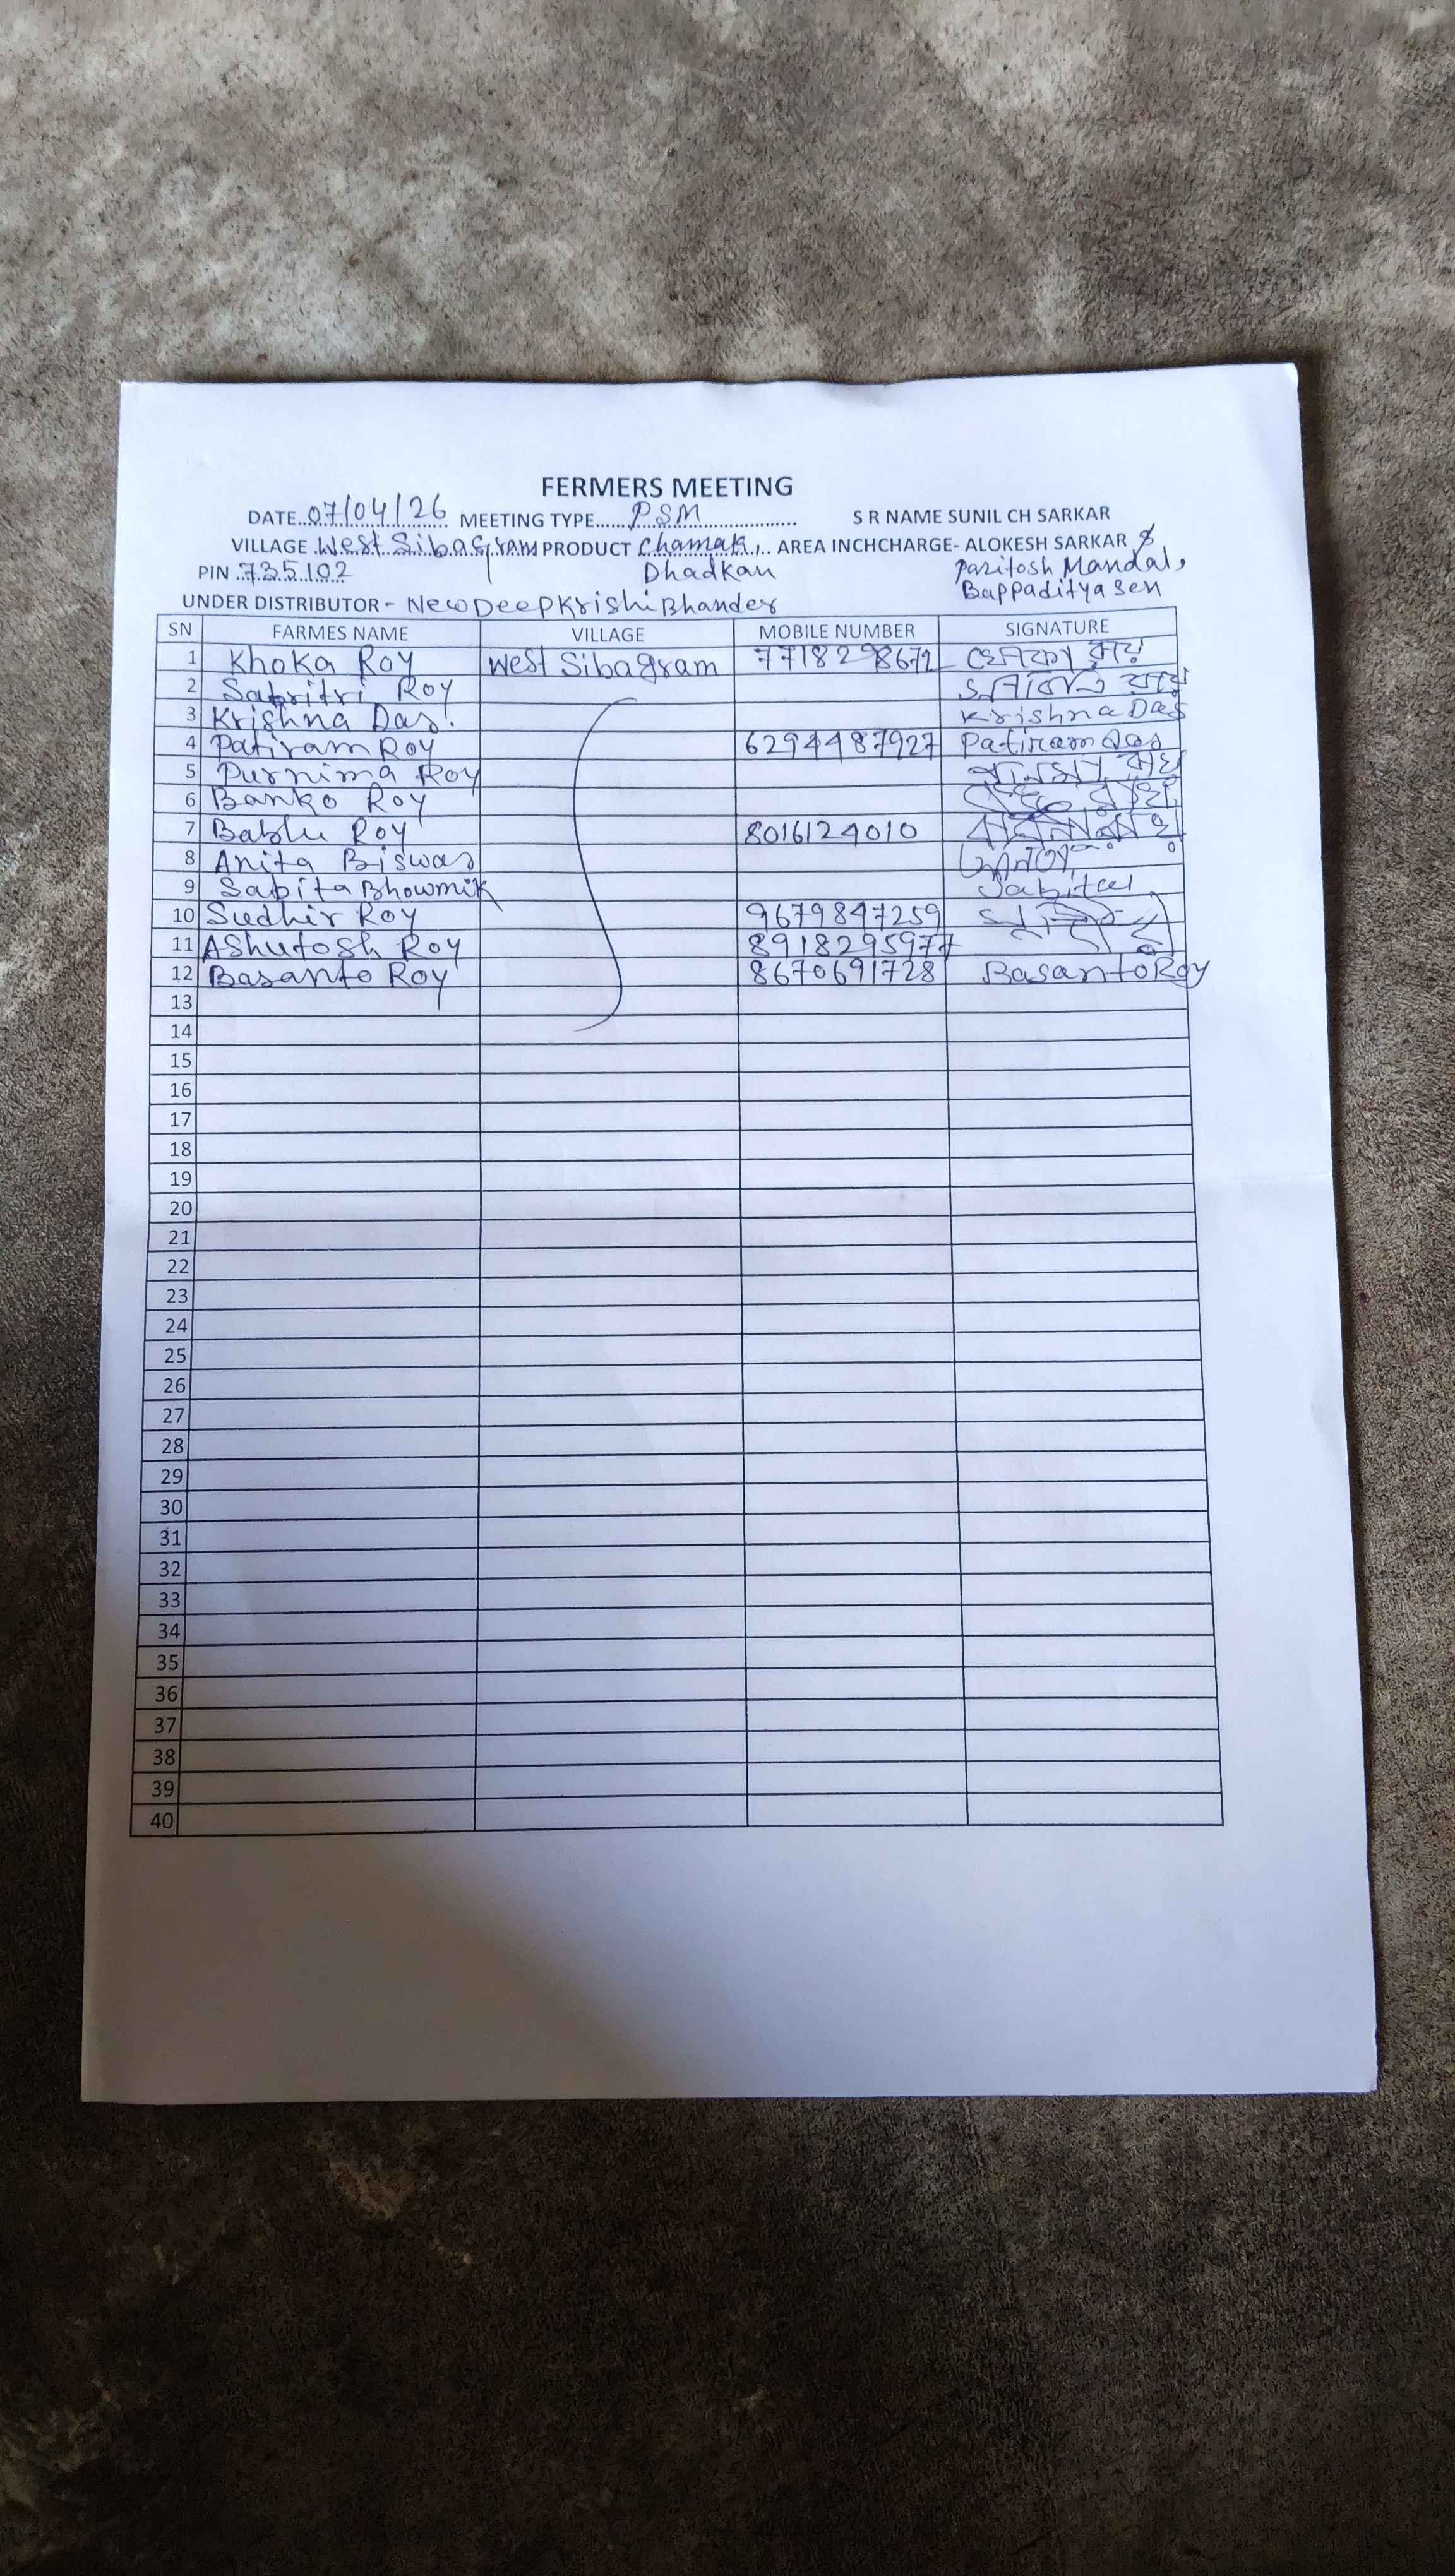 FERMERS MEETING
DATE..07/04/26 MEETING TYPE......PSM.................. S R NAME SUNIL CH SARKAR
VILLAGE West Sibagram PRODUCT Chamak,.. AREA INCHCHARGE- ALOKESH SARKAR &
PIN 735102 Dhadkan Paritosh Mandal,
Bappaditya Sen
UNDER DISTRIBUTOR - New Deep Krishi Bhander
SN FARMES NAME VILLAGE MOBILE NUMBER SIGNATURE
1 Khoka Roy West Sibagram 7718298672 খোকা রায়
2 Sabritri Roy রায়
3 Krishna Das. Krishna Das
4 Patiram Roy 6294487927 Patiram Das
5 Purnima Roy রায়
6 Banko Roy
7 Bablu Roy 8016124010
8 Anita Biswas
9 Sabita Bhowmik Sabita
10 Sudhir Roy 9679847259
11 Ashutosh Roy 8918295977
12 Basanto Roy 8670691728 Basanto Roy
13
14
15
16
17
18
19
20
21
22
23
24
25
26
27
28
29
30
31
32
33
34
35
36
37
38
39
40